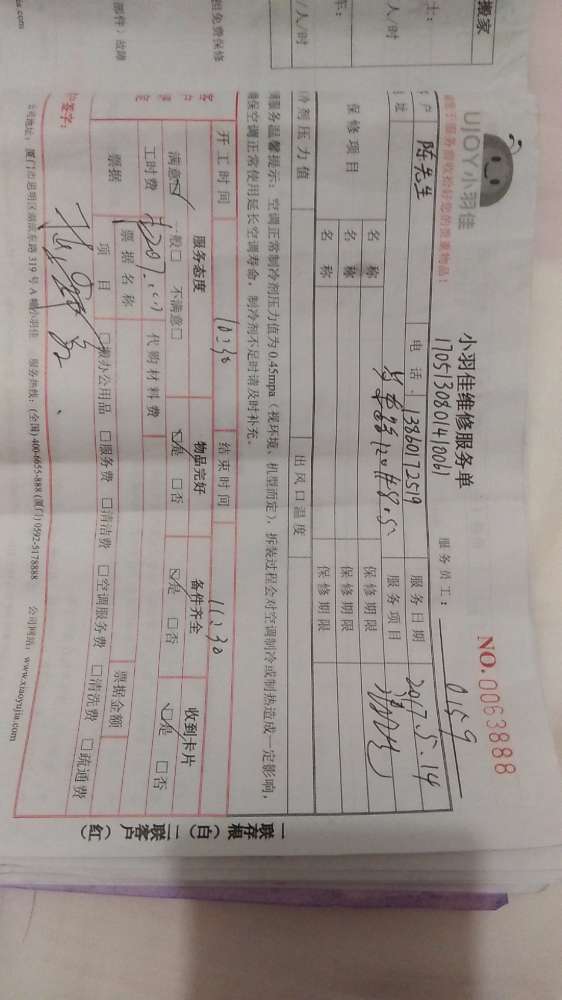 UJOY小羽佳
小羽佳维修服务单
NO.0063888
170573080140061
服务员工：0159
陈先生
电话
13860172519
服务日期
2017.5.14
服务项目
保修项目
名称
保修期限
名称
保修期限
名称
保修期限
冷剂压力值
出风口温度
服务温馨提示：空调正常制冷剂压力值为0.45mpa（视环境、机型而定），拆装过程会对空调制冷或制热造成一定影响，
保空调正常使用延长空调寿命，制冷剂不足时请及时补充。
开工时间
10:30
结束时间
11:30
服务态度
物品完好
备件齐全
收到卡片
满意☑ 一般□ 不满意□
☑是 □否
☑是 □否
☑是 □否
工时费
代购材料费
票据
票据名称
票据金额
项目
□搬办公用品 □服务费 □清洁费 □空调服务费 □清洗费 □疏通费
签字：
公司地址：厦门市思明区湖滨东路319号A幢小羽佳 服务热线：(全国)400-6655-888 (厦门)0592-5178888 公司网站：www.xiaoyujia.com
一联存根（白）二联客户（红）
搬家
士：
/人/时
车：
/人/时
担免费保修
部件）故障
jia.com